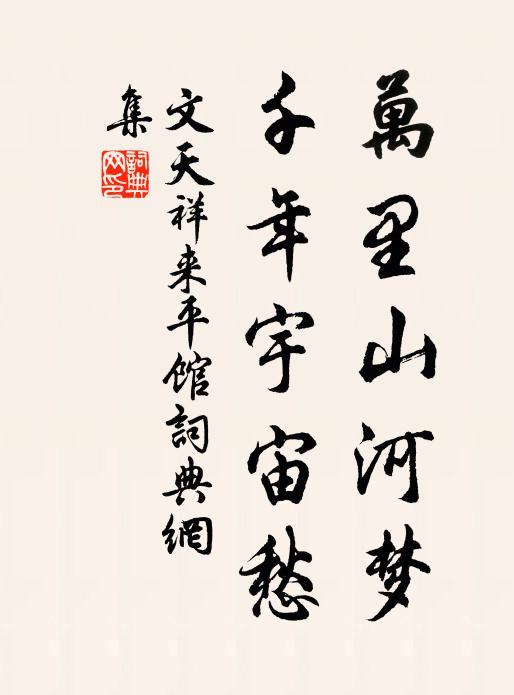 萬里山河梦
千年宇宙愁
文天祥来平馆詞典網
集
詞典網印